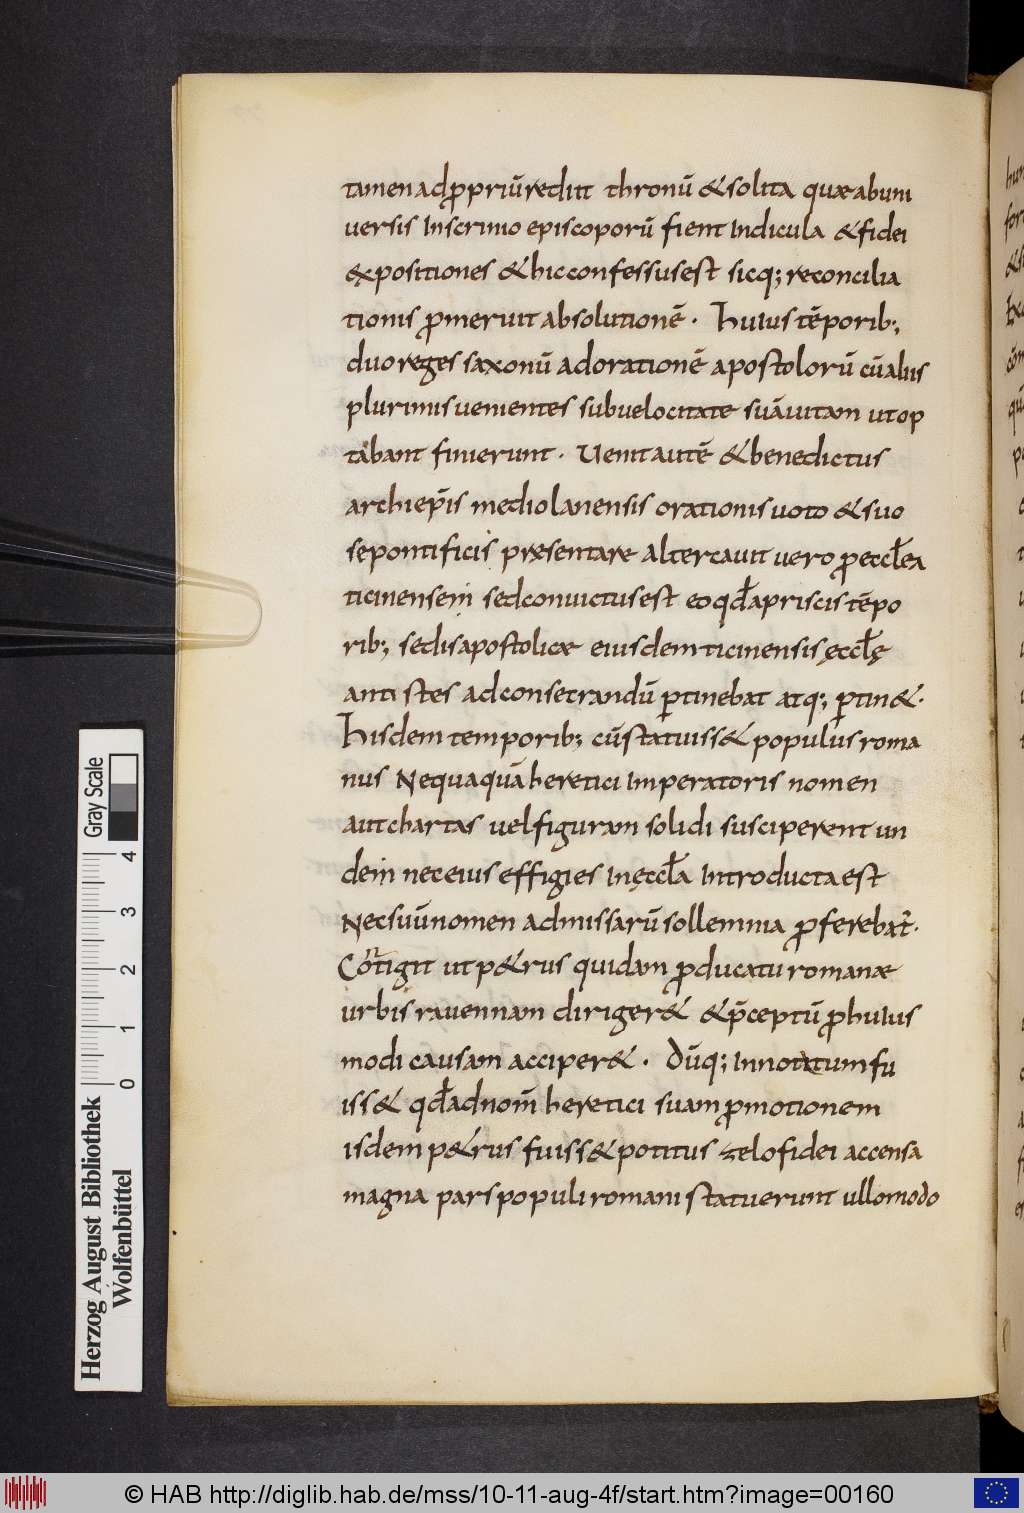 tamen ad ꝓpriū rediit thronū & solita quae ab uni
uersis In scrinio episcoporū fient Indicula & fidei
&positiones & hic confessus est sicq; reconcilia
tionis ꝓmeruit absolutionē · huius tēporib;
duo reges saxonū ad orationē apostolorū cū aliis
plurimis uenientes sub uelocitate suā uitam ut op
tabant finierunt · Uenit autē & benedictus
archiep̄is mediolanensis orationis uoto & suo
se pontificis pręsentare altercauit uero ꝓ eccl̄ea
ticinensem sed conuictus est eo qd̄ a priscis tēpo
rib; sedis apostolicae eiusdem ticinensis ęccl̄ę
antistes ad consecrandū ꝑtinebat atq; ꝑtin& ·
hisdem temporib; cū statuiss& populus roma
nus Nequaquā heretici Imperatoris nomen
aut chartas uel figuram solidi susciperent un
dem nec eius effigies In ęccl̄a Introducta est
Nec suū nomen ad missarū sollemnia ꝓferebat̄ ·
Cōtigit ut p&rus quidam ꝓ ducatu romanae
urbis rauennam diriger& & p̄ceptū ꝓ huius
modi causam acciper& · Dūq; Innotatum fu
iss& qd̄ ad nom̄ heretici suam ꝓmotionem
isdem p&rus fuiss& potitus zelo fidei accensa
magna pars populi romani statuerunt ullomodo
Gray Scale
4
3
2
1
0
Herzog August Bibliothek
Wolfenbüttel
© HAB http://diglib.hab.de/mss/10-11-aug-4f/start.htm?image=00160